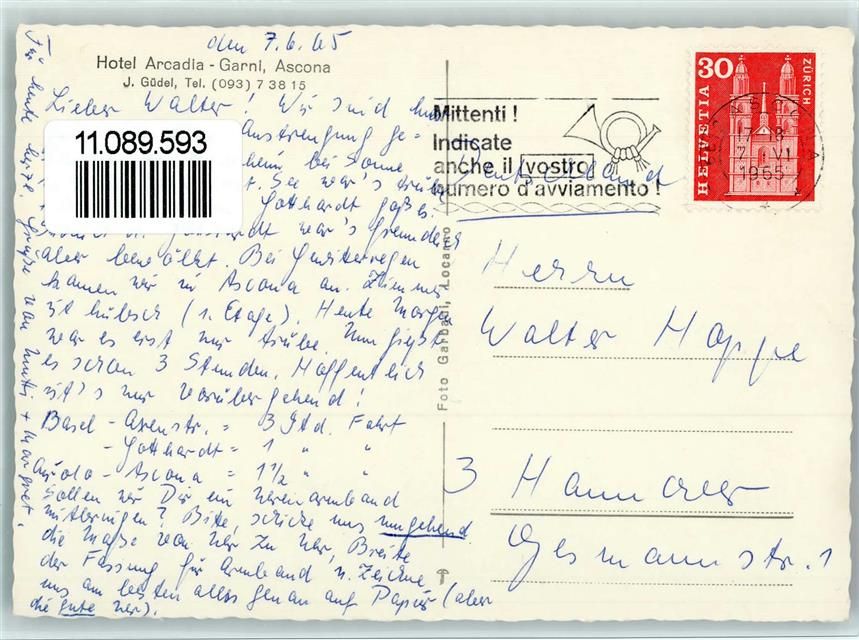 den 7.6.65
Hotel Arcadia - Garni, Ascona
J. Güdel, Tel. (093) 7 38 15
Lieber Walter! Wir sind
11.089.593
Anstrengung ge-
bei Sonne
See war's trübe
Gotthardt goß es.
war's
aber bewölkt. Bei Gewitterregen
kamen wir in Ascona an. Zimmer
ist hübsch (1. Etage). Heute Morgen
war es erst nur trübe. Nun gießt
es schon 3 Stunden. Hoffentlich
ist's nur vorübergehend!
Basel - Axenstr. = 3 Std. Fahrt
- Gotthardt = 1 " "
Airolo - Ascona = 1½ " "
Sollen wir Dir ein
mitbringen? Bitte, schicke uns umgehend
die Maße von, Breite
der Fassung für Armband u. Zeichne
uns am besten alles genau auf Papier (aber
die gute).
Für heute herzl. Grüße von Mutti + Margret.
Foto Garbani, Locarno
Mittenti!
Indicate
anche il vostro
numero d'avviamento!
Deutschland
30
HELVETIA
ZÜRICH
17-18
7. VI
1965
Herrn
Walter Hoppe
3 Hannover
Gesmannstr. 1